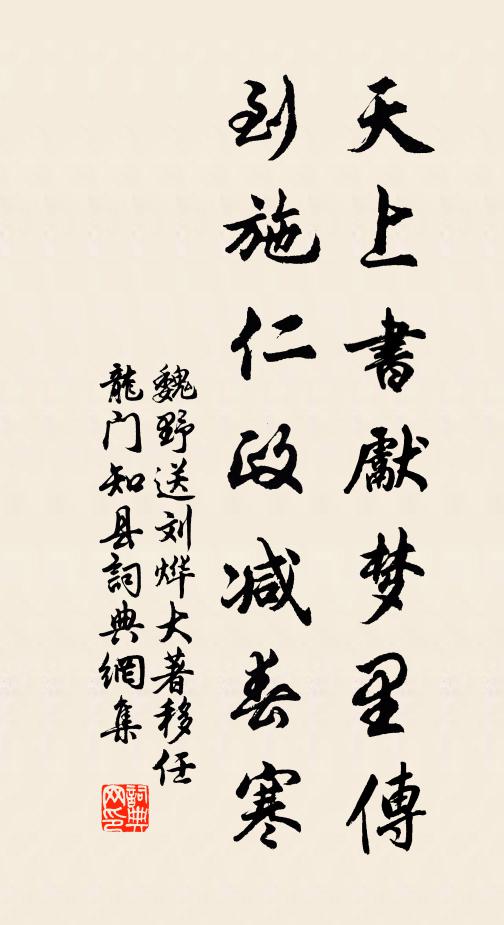 天上書獻梦里傳
到施仁政减春寒
魏野送刘烨大著移任
龍门知县詞典網集
詞典网印